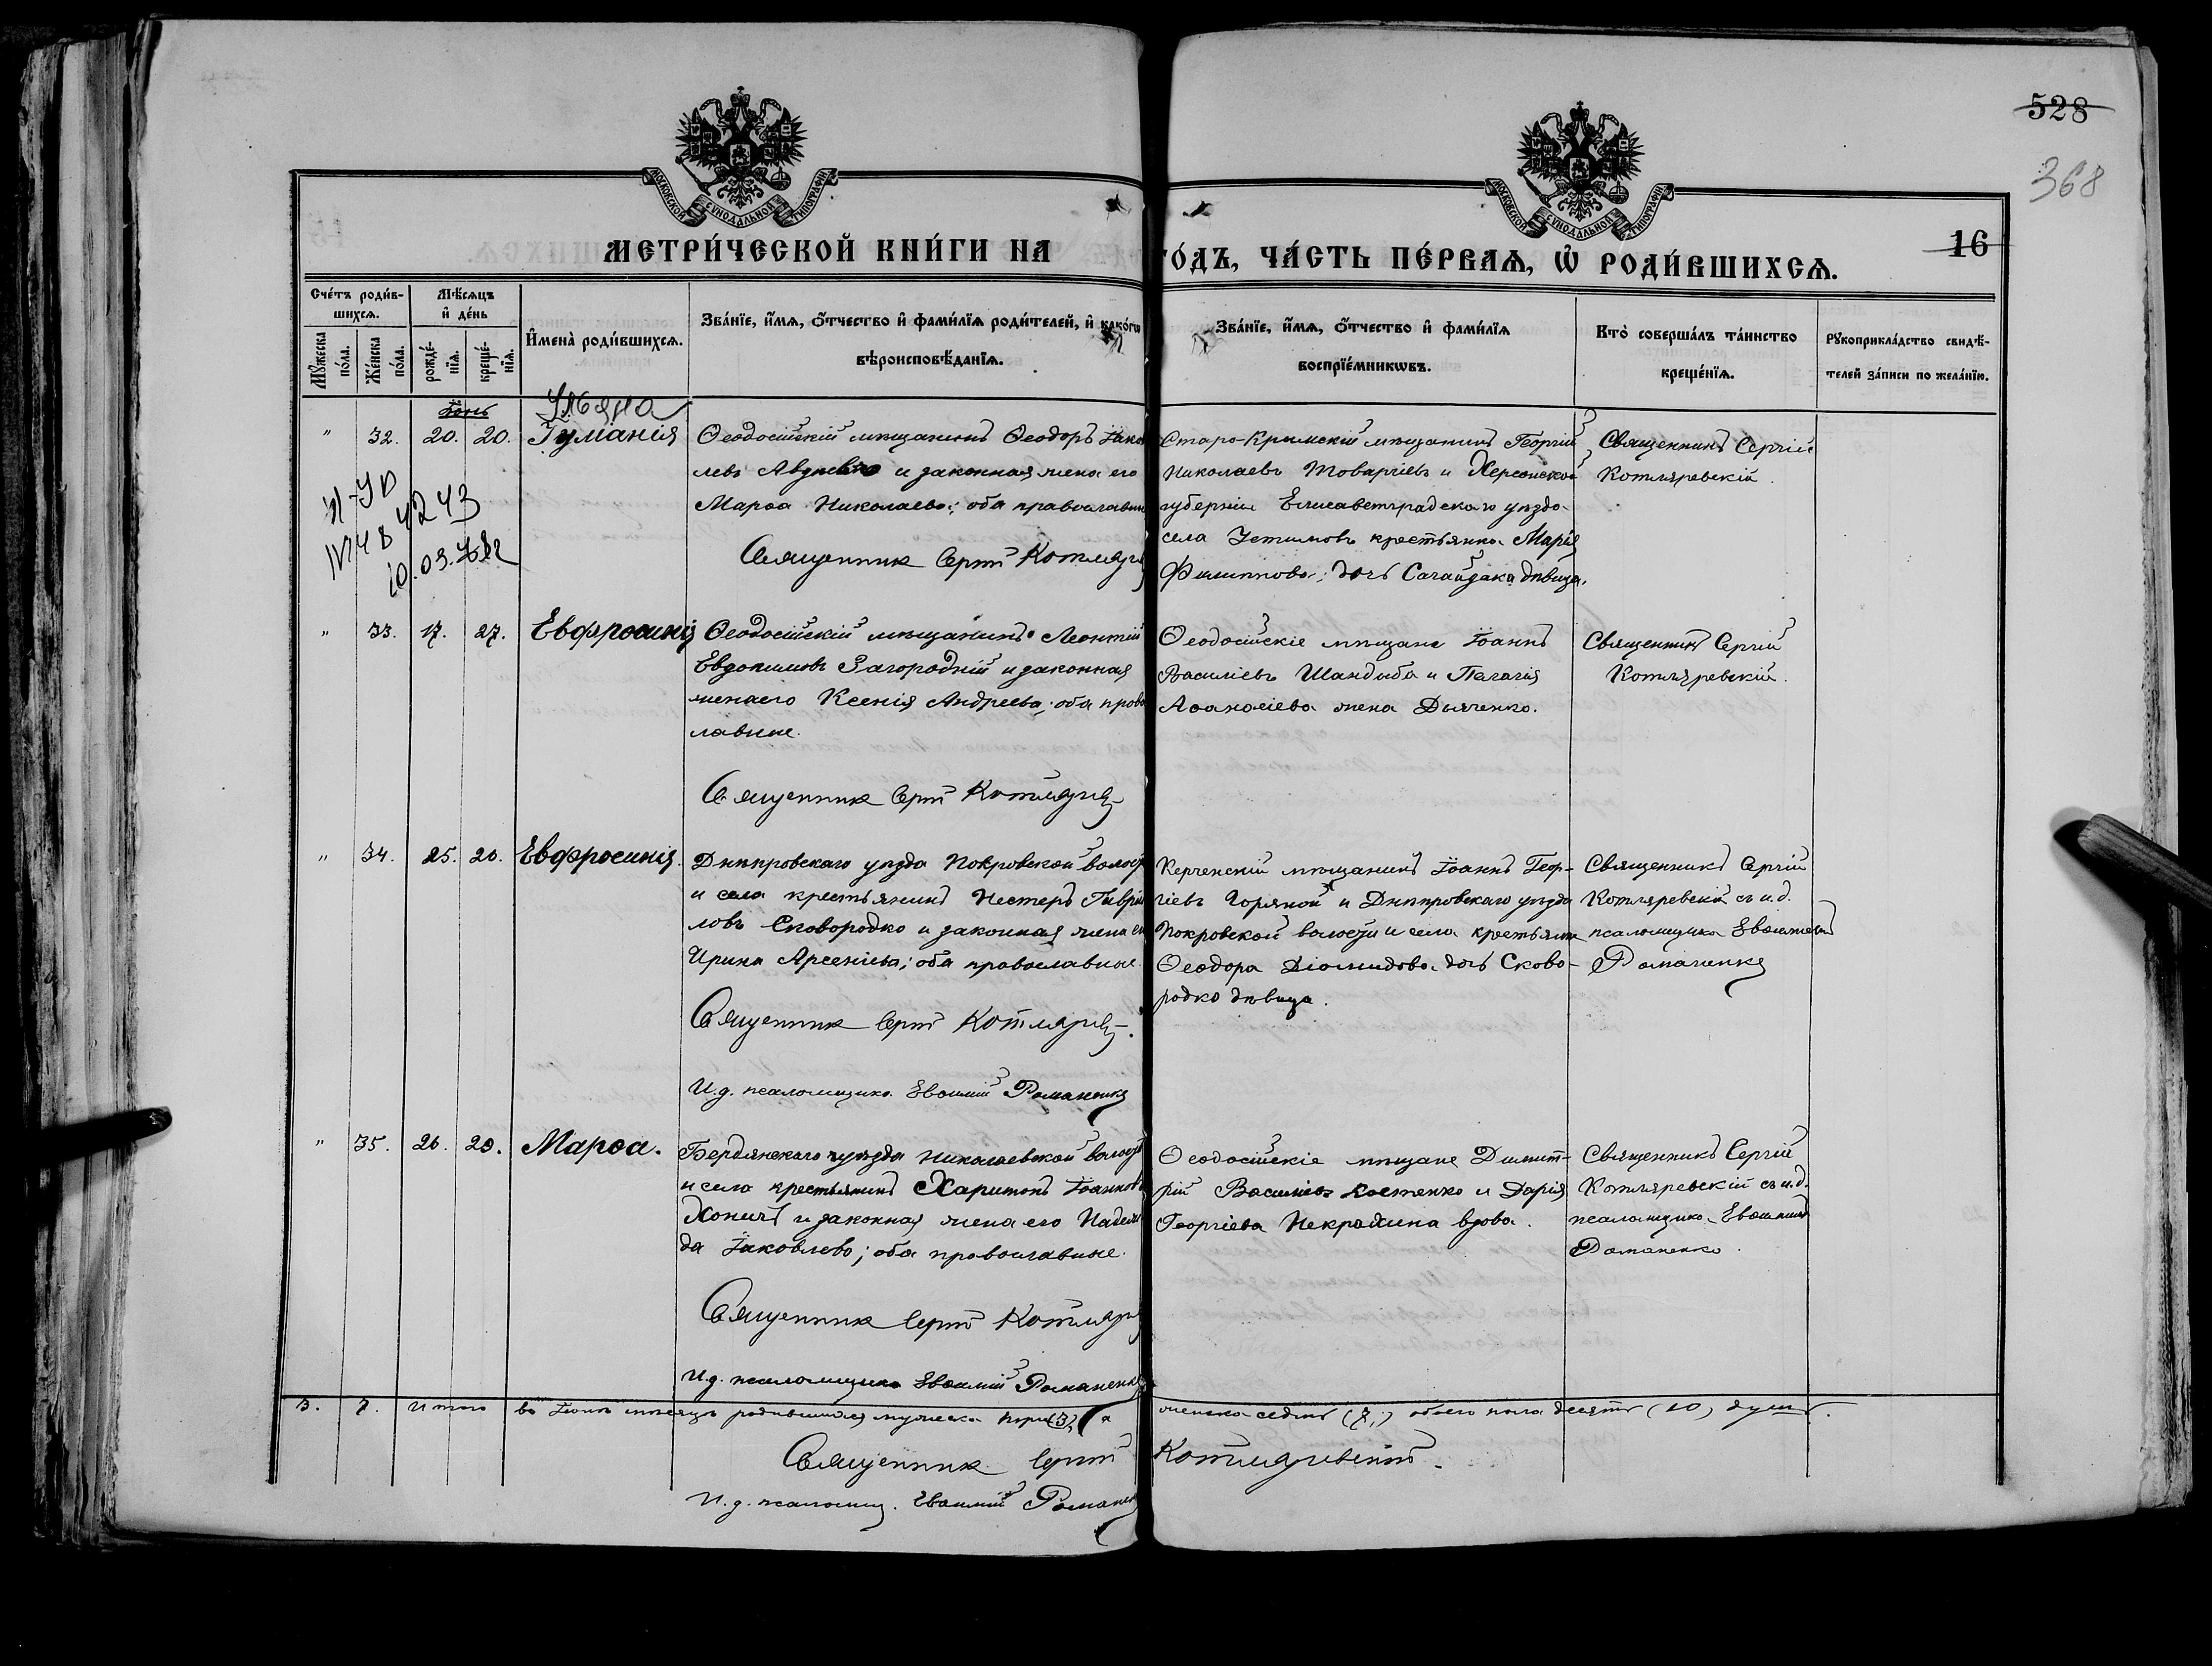 528
368
16
МОСКОВСКОЙ СѴНОДАЛЬНОЙ ТИПОГРАФІИ
МОСКОВСКОЙ СѴНОДАЛЬНОЙ ТИПОГРАФІИ
МЕТРИ́ЧЕСКОЙ КНИ́ГИ НА ГО́ДЪ, ЧА́СТЬ ПЕ́РВАѦ, Ѡ҆ РОДИ́ВШИХСѦ.
Сче́тъ роди́в-
шихсѧ.
Мꙋ́жеска по́ла.
Же́нска по́ла.
Мѣ́сѧцъ
и҆ де́нь
рожде́-
нїѧ.
креще́-
нїѧ.
И҆мена̀ роди́вшихсѧ.
Зва́нїе, и҆́мѧ, ѻ҆́тчество и҆ фами́лїѧ роди́телей, и҆ како́гѡ
вѣроисповѣ́данїѧ.
Зва́нїе, и҆́мѧ, ѻ҆́тчество и҆ фами́лїѧ
воспрїе́мникѡвъ.
Кто̀ соверша́лъ та́инство
креще́нїѧ.
Рꙋкоприкла́дство свидѣ́-
телей за́писи по жела́нїю.
Іюнь
Ульяна
" 32. 20. 20. Іуліанія
Ѳеодосійскій мѣщанинъ Ѳеодоръ Іако
левъ и законная жена его
Марѳа Николаева; оба православн
Священник Сергій Котляр
Старо-Крымскій мѣщанинъ Георгій
Николаевъ Товаргіевъ и Херсонской
губерніи Елисаветградскаго уѣзда
села крестьянка Марія
Филиппова, дочь Сагайдака дѣвица.
Священникъ Сергій
Котляревскій.
4243
" 33. 17. 27. Евфросинія
Ѳеодосійскій мѣщанинъ Леонтій
Евдокимовъ Загородній и законная
жена его Ксенія Андреева; оба право
лавные.
Священник Сергій Котлярев
Ѳеодосійскіе мѣщане Іоаннъ
Василіевъ Шандыба и Пелагія
Аѳанасіева жена Дьяченко.
Священникъ Сергій
Котляревскій.
" 34. 25. 26. Евфросинія.
Днѣпровскаго уѣзда Покровской волост
и села крестьянинъ Нестеръ Гаврии
ловъ Сковородко и законная жена ег
Ирина Арсеніева; оба православные.
Священник Сергій Котлярев.
И.д. псаломщика Евѳимій Романенко
Керченскій мѣщанинъ Іоаннъ Геор-
гіевъ Горяной и Днѣпровскаго уѣзда
Покровской волости и села крестьянка
Ѳеодора Діомидова дочь Сково-
родко дѣвица.
Священникъ Сергій
Котляревскій съ и.д.
псаломщика Евѳиміемъ
Романенко
" 35. 26. 29. Марѳа.
Бердянскаго уѣзда Николаевской волост
и села крестьянинъ Харитонъ Іоанновъ
и законная жена его Надеж
да Іаковлева; оба православные.
Священник Сергій Котляр
И.д. псаломщика Евѳимій Романенко
Ѳеодосійскіе мѣщане Димит-
рій Василіевъ Костенко и Дарія
Георгіева Некрахина вдова.
Священникъ Сергій
Котляревскій съ и.д.
псаломщика Евѳиміемъ
Романенко.
3. 7. Итого въ Іюнѣ мѣсяцѣ родившихся мужеска три (3), а женска седмь (7,) обоего пола десять (10) душъ.
Священник Сергій Котляревскій.
И.д. псаломщ. Евѳимій Романен